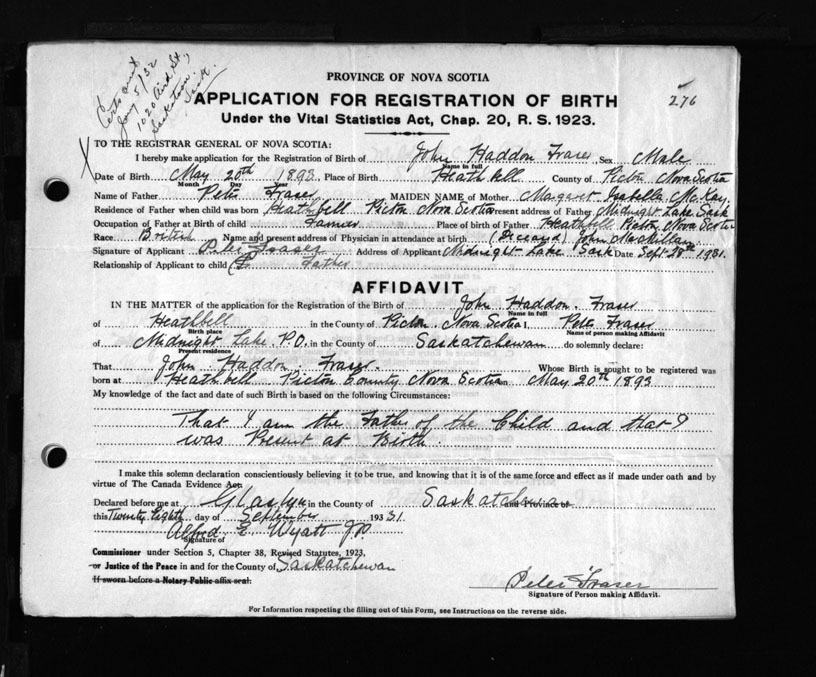 Certs sent
Jan 5/32
1020 Ave St.,
Saskatoon,
Sask.
PROVINCE OF NOVA SCOTIA
276
APPLICATION FOR REGISTRATION OF BIRTH
Under the Vital Statistics Act, Chap. 20, R. S. 1923.
X TO THE REGISTRAR GENERAL OF NOVA SCOTIA:
I hereby make application for the Registration of Birth of John Haddon Fraser Sex Male
Name in full
Date of Birth May 20th 1893 Place of Birth Heathbell County of Picton Nova Scotia
Month Day Year
Name of Father Peter Fraser MAIDEN NAME of Mother Margaret Isabella McKay
Residence of Father when child was born Heathbell Picton Nova Scotia Present address of Father Midnight Lake, Sask
Occupation of Father at Birth of child Farmer Place of birth of Father Heathbell Picton Nova Scotia
Race British Name and present address of Physician in attendance at birth (Deceased) John MacMillan
Signature of Applicant Peter Fraser Address of Applicant Midnight Lake Sask Date Sept 28th 1931.
Relationship of Applicant to child Father
AFFIDAVIT
IN THE MATTER of the application for the Registration of the Birth of John Haddon. Fraser
Name in full
of Heathbell in the County of Picton Nova Scotia I, Peter Fraser
Birth place Name of person making Affidavit
of Midnight Lake P.O. in the County of Saskatchewan do solemnly declare:
Present residence
That John Haddon Fraser. Whose Birth is sought to be registered was
born at Heathbell Picton County Nova Scotia May 20th 1893
My knowledge of the fact and date of such Birth is based on the following Circumstances:
That I am the Father of the Child and that I
was Present at Birth.
I make this solemn declaration conscientiously believing it to be true, and knowing that it is of the same force and effect as if made under oath and by
virtue of The Canada Evidence Act.
Declared before me at Glaslyn in the County of Saskatchewan and Province of
this Twenty Eighth day of September 193 31
Alfred E Wyatt JP
Signature of
Commissioner under Section 5, Chapter 38, Revised Statutes, 1923,
or Justice of the Peace in and for the County of Saskatchewan
If sworn before a Notary Public affix seal.
Peter Fraser
Signature of Person making Affidavit.
For Information respecting the filling out of this Form, see Instructions on the reverse side.